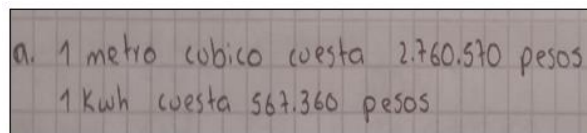 a. 1 metro cubico cuesta 2.760.570 pesos
1 Kwh cuesta 567.360 pesos